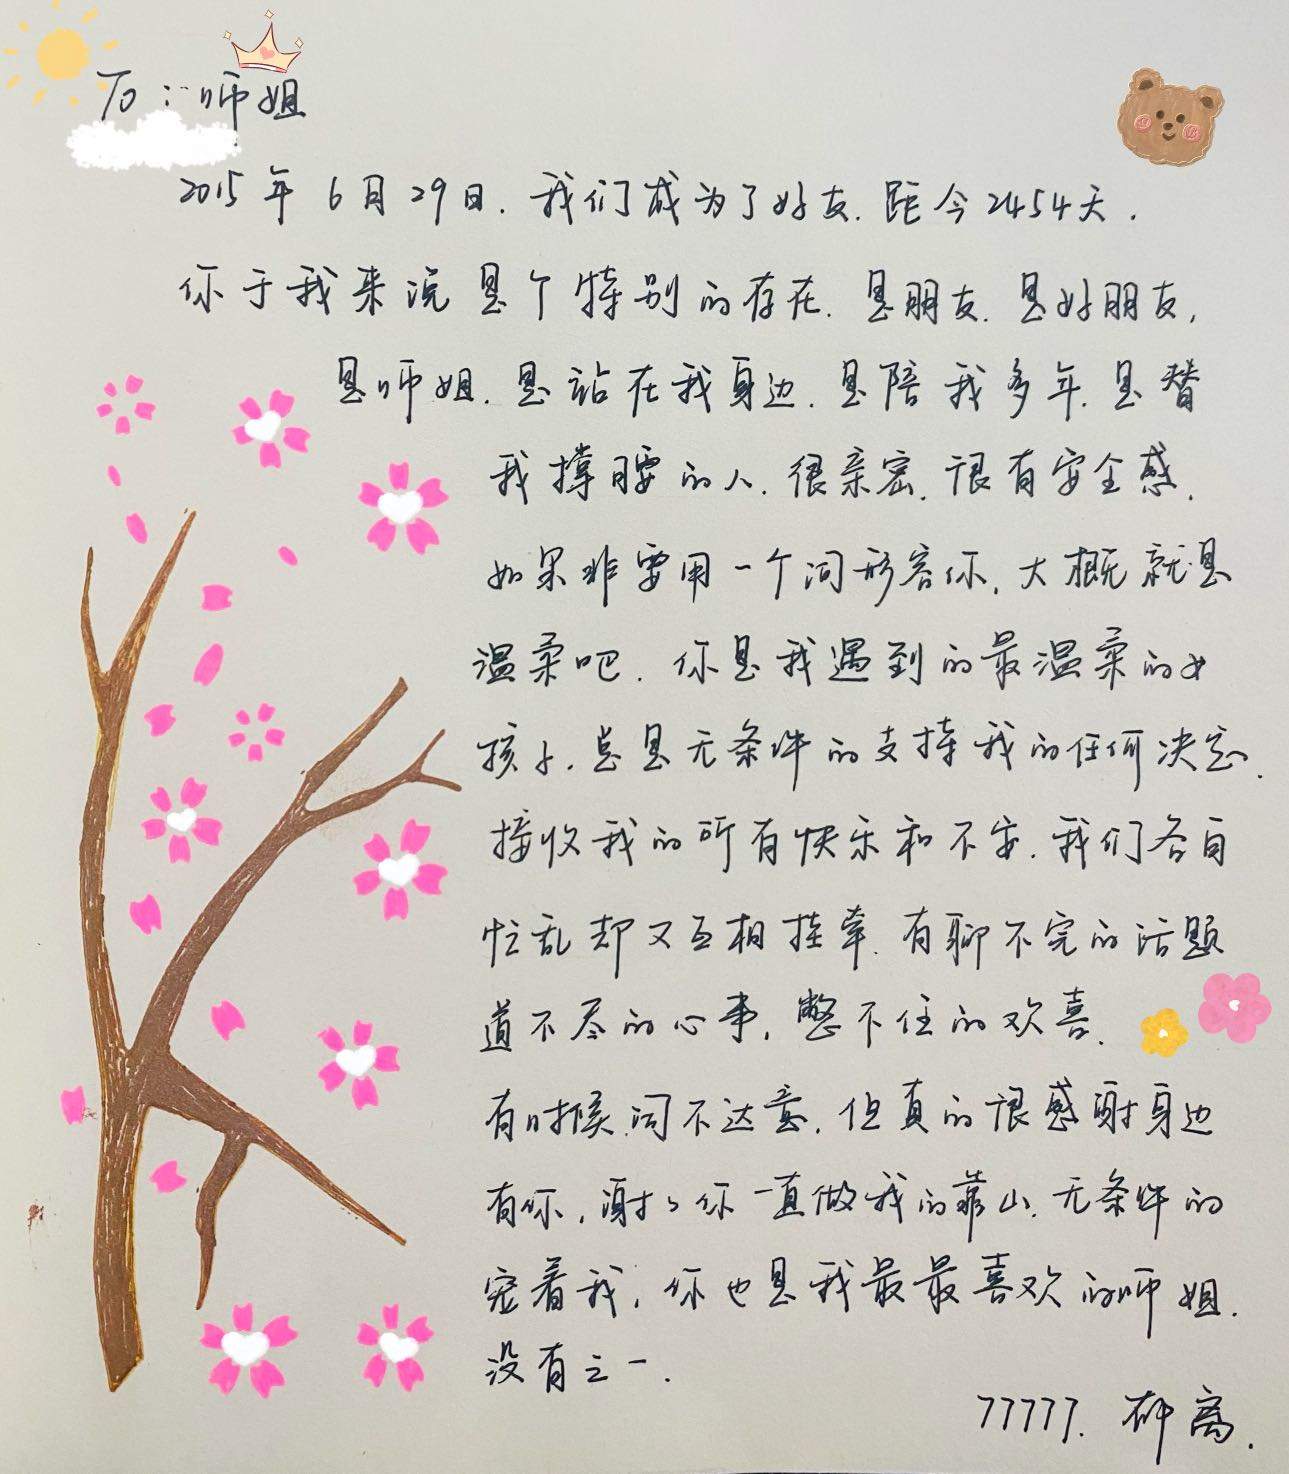 To：师姐
2015年6月29日.我们成为了好友.距今2454天.
你于我来说是个特别的存在.是朋友.是好朋友,
是师姐.是站在我身边.是陪我多年.是替
我撑腰的人.很亲密.很有安全感.
如果非要用一个词形容你,大概就是
温柔吧.你是我遇到的最温柔的女
孩子.总是无条件的支持我的任何决定.
接收我的所有快乐和不安.我们各自
忙乱却又互相挂牵.有聊不完的话题
道不尽的心事,憋不住的欢喜.
有时候词不达意,但真的很感谢身边
有你,谢谢你一直做我的靠山.无条件的
宠着我,你也是我最最喜欢的师姐.
没有之一.
77777.